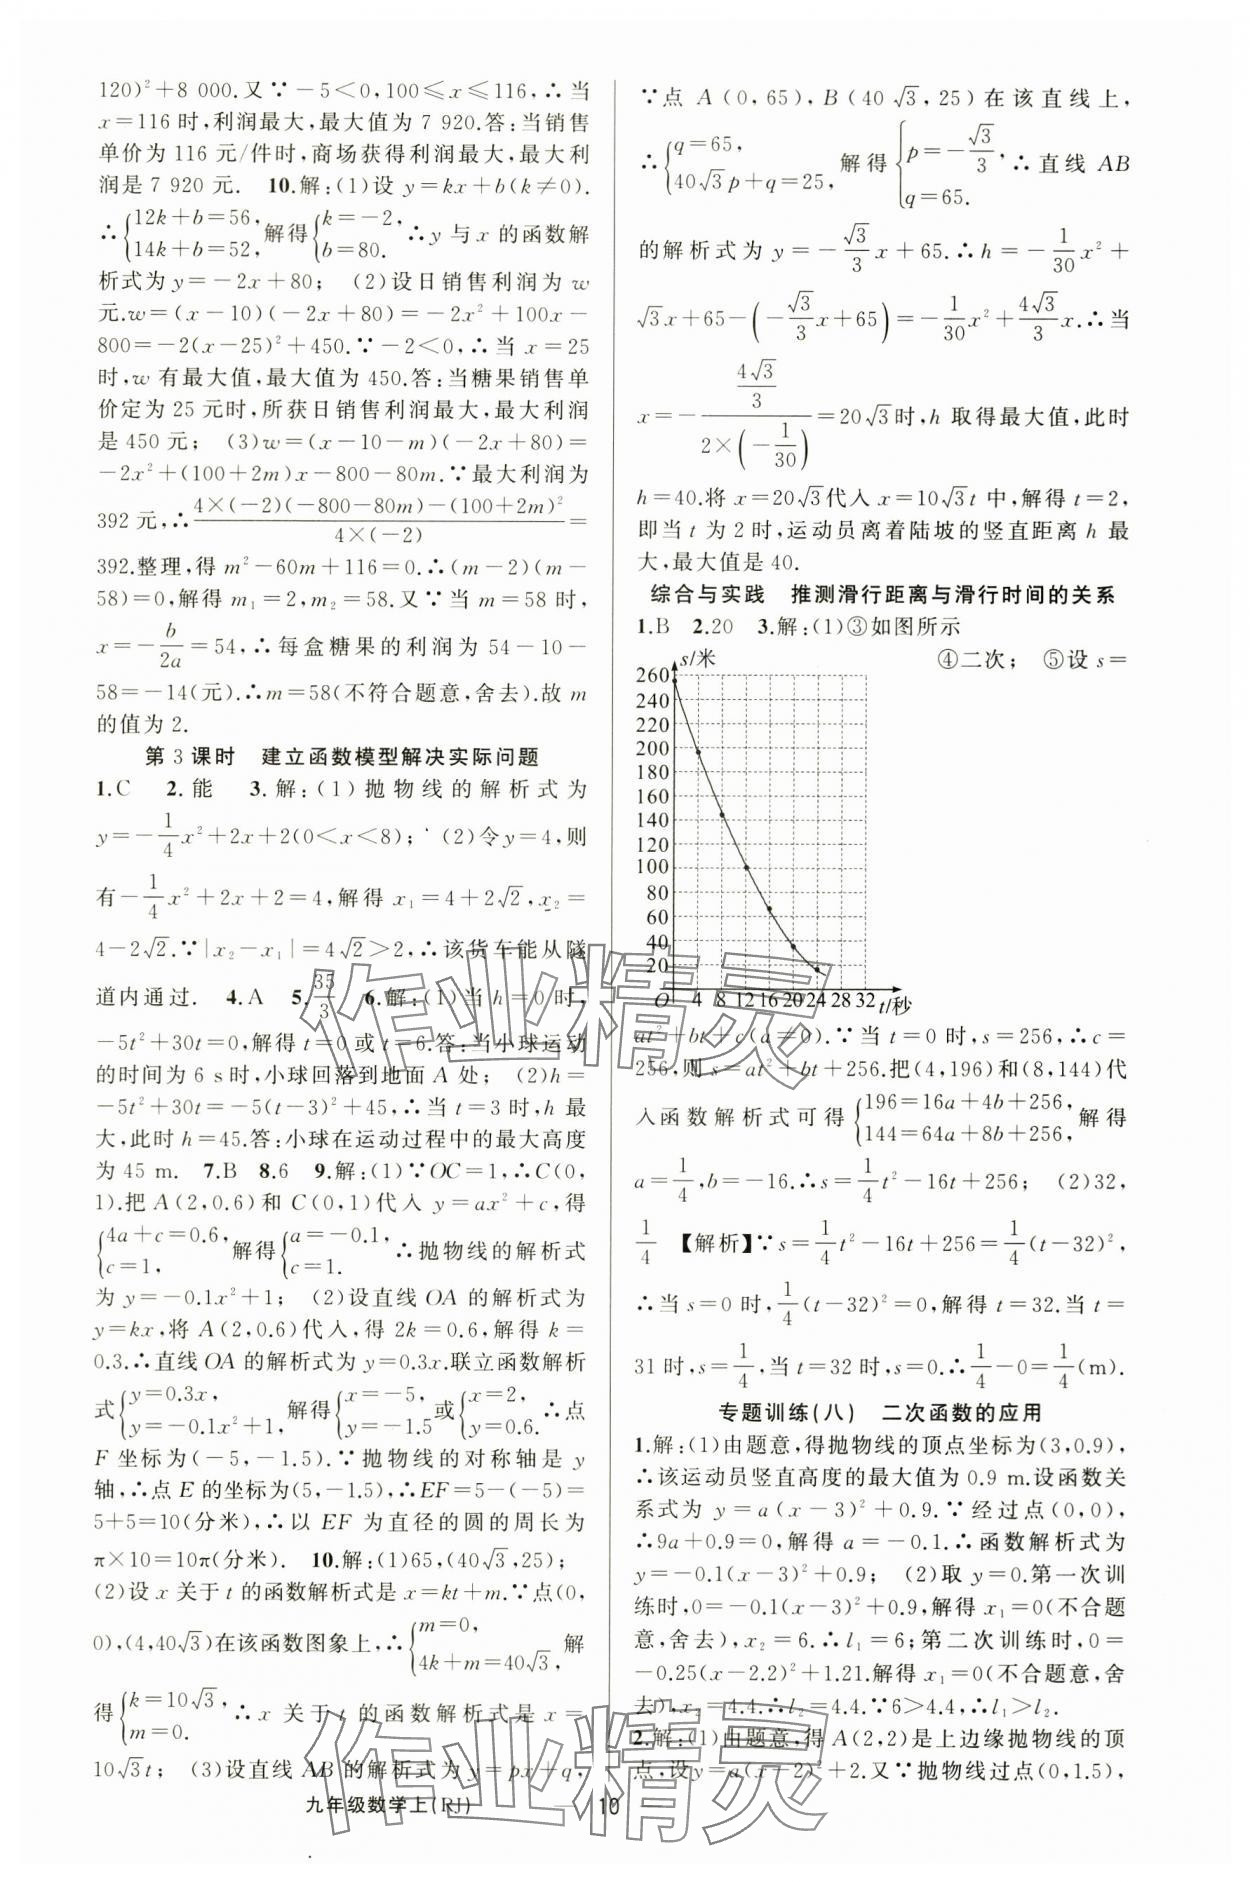 120)²+8 000.又∵-5<0,100≤x≤116,∴当
x=116时,利润最大,最大值为7 920.答:当销售
单价为116元/件时,商场获得利润最大,最大利
润是7 920元. 10.解:(1)设y=kx+b(k≠0).
∴{12k+b=56, 14k+b=52, 解得{k=-2, b=80. ∴y与x的函数解
析式为y=-2x+80; (2)设日销售利润为w
元.w=(x-10)(-2x+80)=-2x²+100x-
800=-2(x-25)²+450.∵-2<0,∴当x=25
时,w有最大值,最大值为450.答:当糖果销售单
价定为25元时,所获日销售利润最大,最大利润
是450元; (3)w=(x-10-m)(-2x+80)=
-2x²+(100+2m)x-800-80m.∵最大利润为
392元,∴(4×(-2)(-800-80m)-(100+2m)²)/(4×(-2))=
392.整理,得m²-60m+116=0.∴(m-2)(m-
58)=0,解得m₁=2,m₂=58.又∵当m=58时,
x=-b/2a=54,∴每盒糖果的利润为54-10-
58=-14(元).∴m=58(不符合题意,舍去).故m
的值为2.
第3课时 建立函数模型解决实际问题
1.C 2.能 3.解:(1)抛物线的解析式为
y=-1/4x²+2x+2(0<x<8); (2)令y=4,则
有-1/4x²+2x+2=4,解得x₁=4+2√2,x₂=
4-2√2.∵|x₂-x₁|=4√2>2,∴该货车能从隧
道内通过. 4.A 5.35/3 6.解:(1)当h=0时,
-5t²+30t=0,解得t=0或t=6.答:当小球运动
的时间为6 s时,小球回落到地面A处; (2)h=
-5t²+30t=-5(t-3)²+45,∴当t=3时,h最
大,此时h=45.答:小球在运动过程中的最大高度
为45 m. 7.B 8.6 9.解:(1)∵OC=1,∴C(0,
1).把A(2,0.6)和C(0,1)代入y=ax²+c,得
{4a+c=0.6, c=1, 解得{a=-0.1, c=1. ∴抛物线的解析式
为y=-0.1x²+1; (2)设直线OA的解析式为
y=kx,将A(2,0.6)代入,得2k=0.6,解得k=
0.3.∴直线OA的解析式为y=0.3x.联立函数解析
式{y=0.3x, y=-0.1x²+1, 解得{x=-5, y=-1.5或{x=2, y=0.6. ∴点
F坐标为(-5,-1.5).∵抛物线的对称轴是y
轴,∴点E的坐标为(5,-1.5),∴EF=5-(-5)=
5+5=10(分米),∴以EF为直径的圆的周长为
π×10=10π(分米). 10.解:(1)65,(40√3,25);
(2)设x关于t的函数解析式是x=kt+m.∵点(0,
0),(4,40√3)在该函数图象上,∴{m=0, 4k+m=40√3, 解
得{k=10√3, m=0. ∴x关于t的函数解析式是x=
10√3t; (3)设直线AB的解析式为y=px+q,
∵点A(0,65),B(40√3,25)在该直线上,
∴{q=65, 40√3p+q=25, 解得{p=-√3/3, q=65. ∴直线AB
的解析式为y=-√3/3x+65.∴h=-1/30x²+
√3x+65-(-√3/3x+65)=-1/30x²+4√3/3x.∴当
x=-(4√3/3)/(2×(-1/30))=20√3时,h取得最大值,此时
h=40.将x=20√3代入x=10√3t中,解得t=2,
即当t为2时,运动员离着陆坡的竖直距离h最
大,最大值是40.
综合与实践 推测滑行距离与滑行时间的关系
1.B 2.20 3.解:(1)③如图所示
④二次; ⑤设s=
s/米
260
240
220
200
180
160
140
120
100
80
60
40
20
O 4 8 12 16 20 24 28 32 t/秒
at²+bt+c(a≠0).∵当t=0时,s=256,∴c=
256,则s=at²+bt+256.把(4,196)和(8,144)代
入函数解析式可得{196=16a+4b+256, 144=64a+8b+256, 解得
a=1/4,b=-16.∴s=1/4t²-16t+256; (2)32,
1/4 【解析】∵s=1/4t²-16t+256=1/4(t-32)²,
∴当s=0时,1/4(t-32)²=0,解得t=32.当t=
31时,s=1/4,当t=32时,s=0.∴1/4-0=1/4(m).
专题训练(八) 二次函数的应用
1.解:(1)由题意,得抛物线的顶点坐标为(3,0.9),
∴该运动员竖直高度的最大值为0.9 m.设函数关
系式为y=a(x-3)²+0.9.∵经过点(0,0),
∴9a+0.9=0,解得a=-0.1.∴函数解析式为
y=-0.1(x-3)²+0.9; (2)取y=0.第一次训
练时,0=-0.1(x-3)²+0.9,解得x₁=0(不合题
意,舍去),x₂=6.∴l₁=6;第二次训练时,0=
-0.25(x-2.2)²+1.21.解得x₁=0(不合题意,舍
去),x₂=4.4.∴l₂=4.4.∵6>4.4,∴l₁>l₂.
2.解:(1)由题意,得A(2,2)是上边缘抛物线的顶
点,设y=a(x-2)²+2.又∵抛物线过点(0,1.5),
九年级数学上(RJ) — 10 —
作业精灵
作业精灵